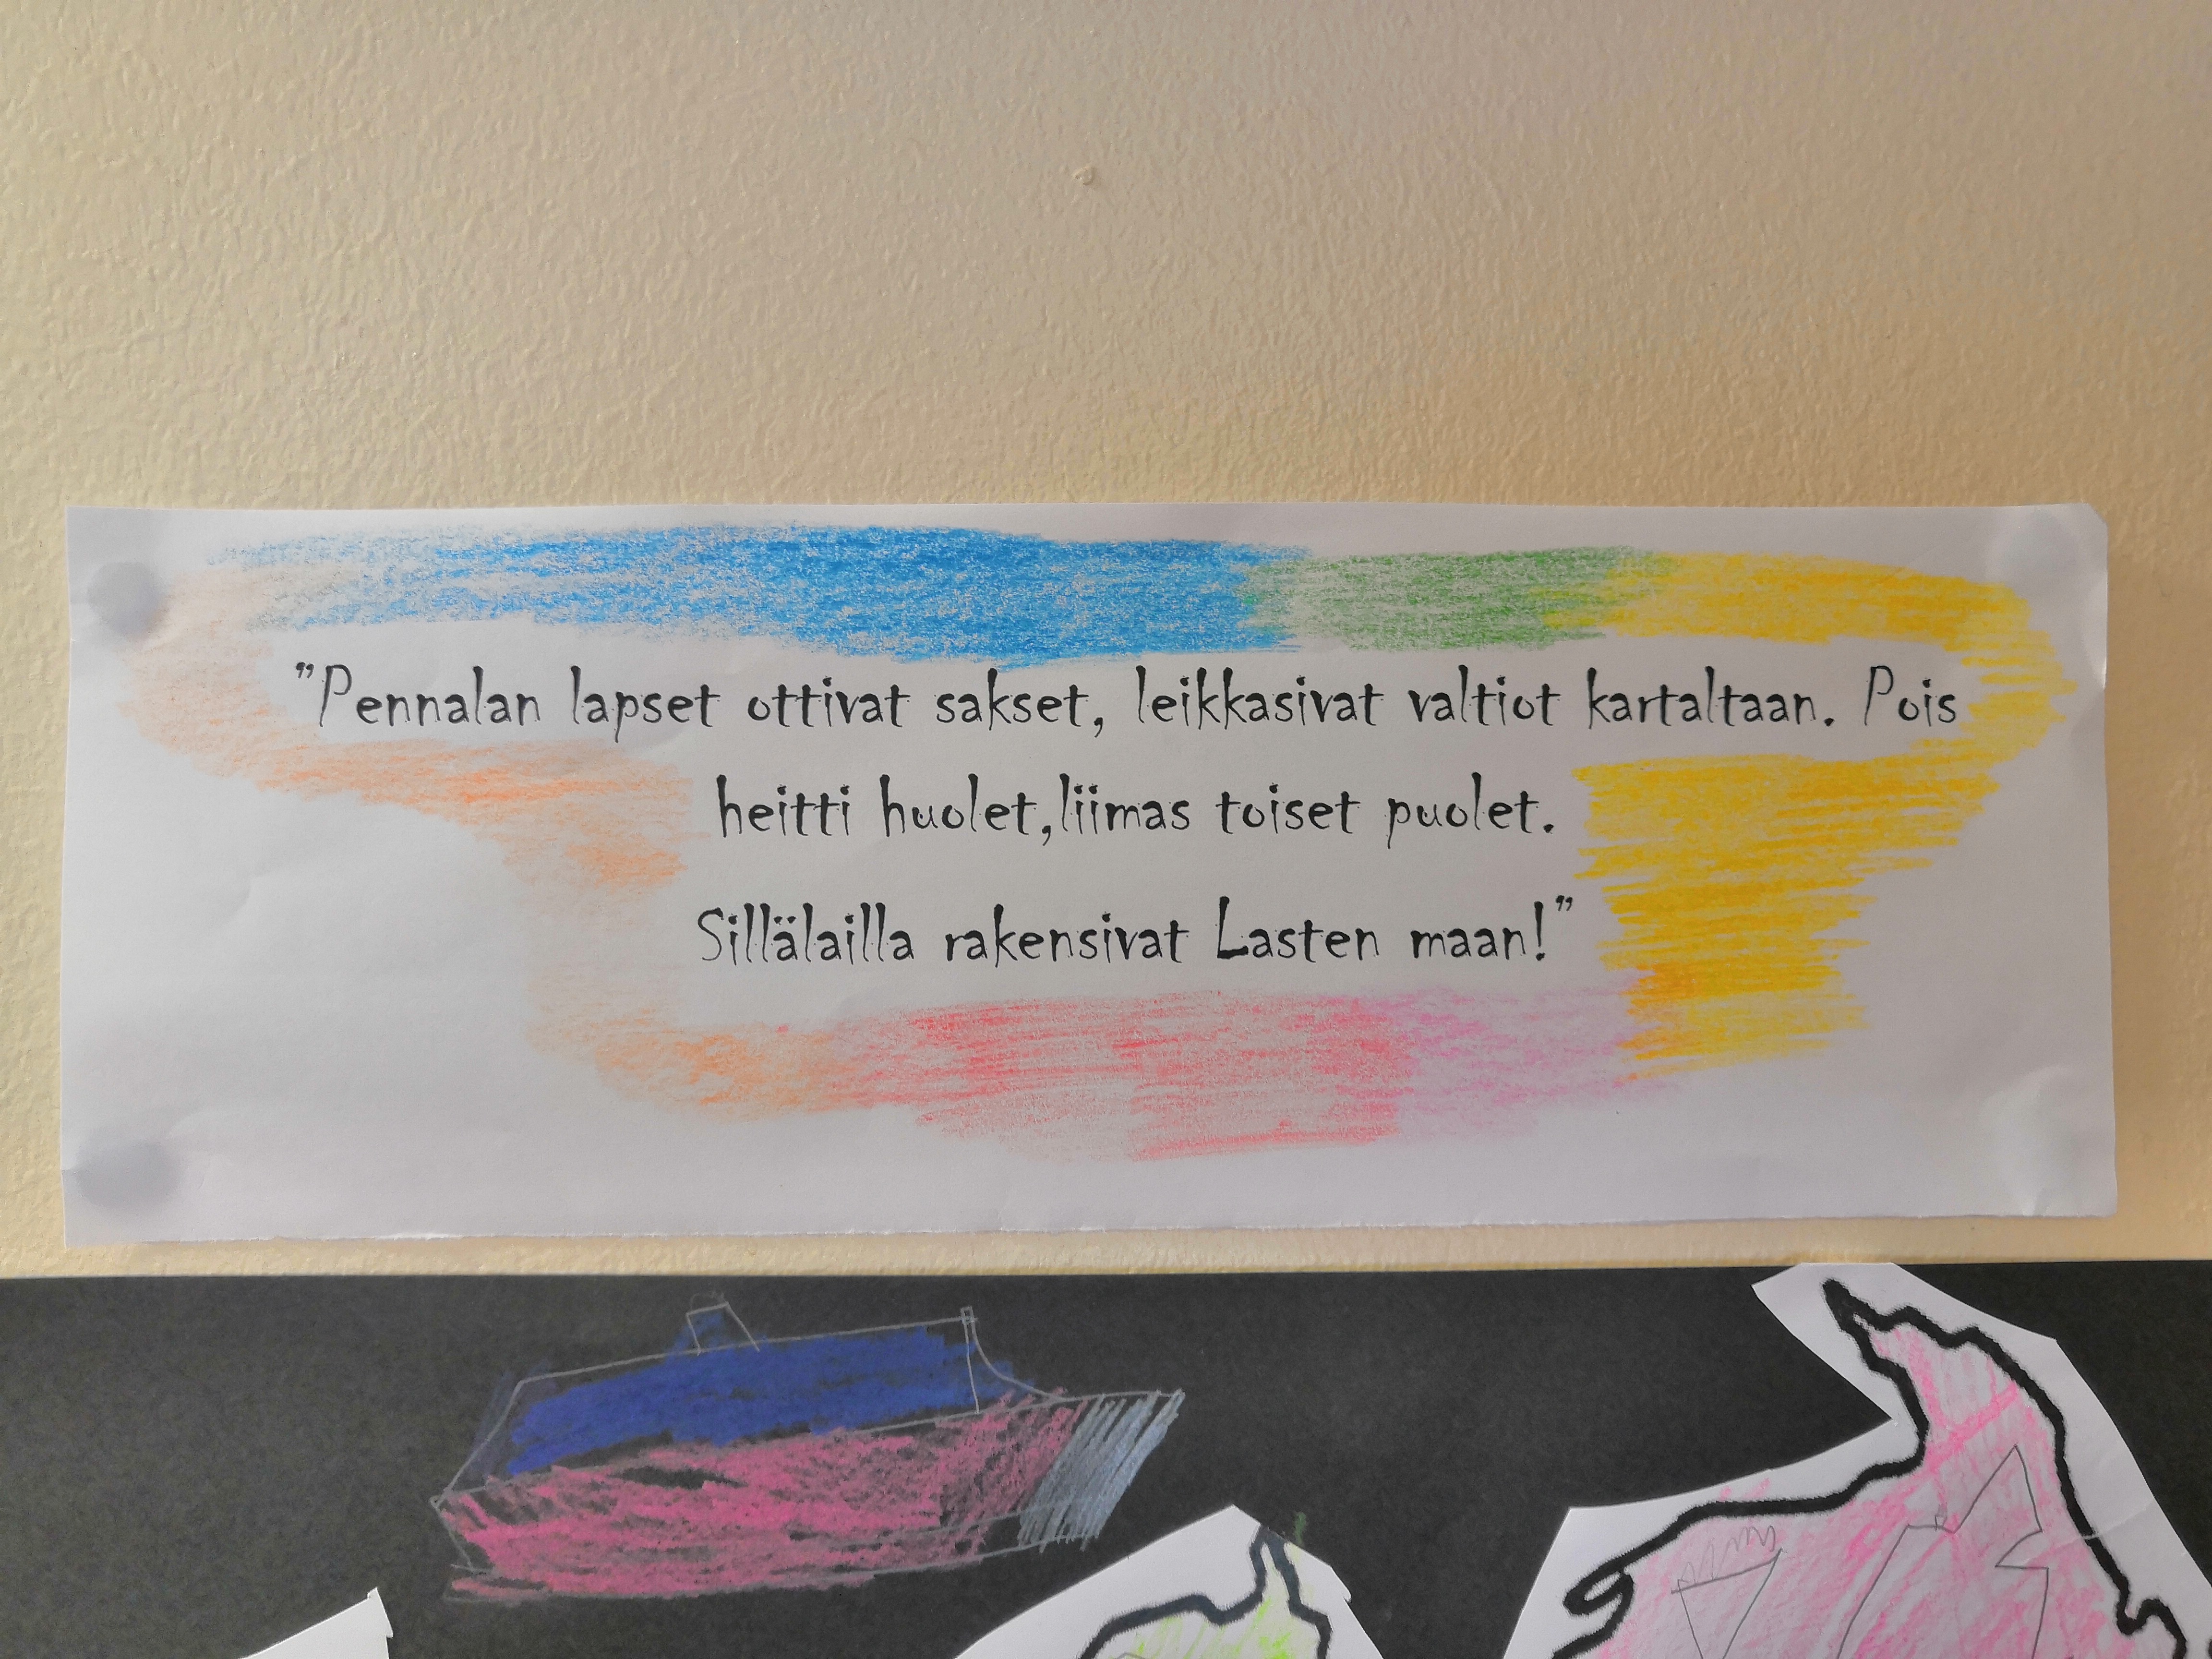 ”Pennalan lapset ottivat sakset, leikkasivat valtiot kartaltaan. Pois
heitti huolet,liimas toiset puolet.
Sillälailla rakensivat Lasten maan!”